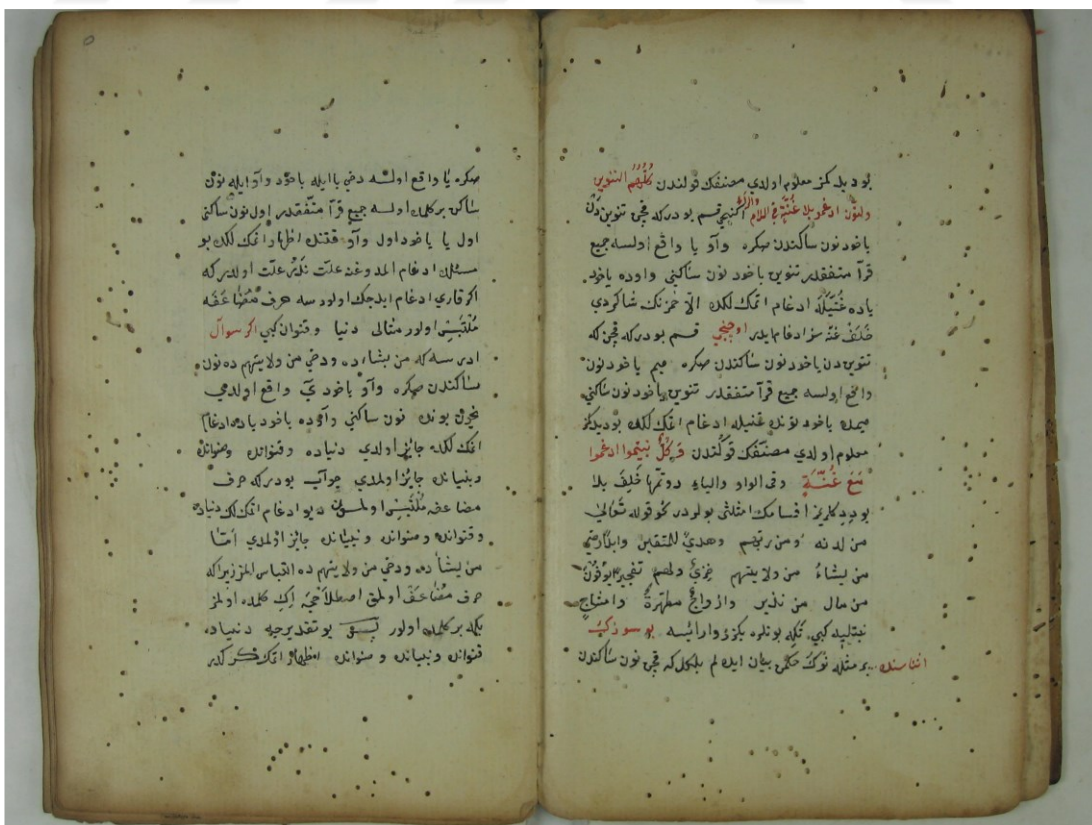 بو دیدكز معلوم اولدي مصنفك قولندن وكلهم التنوين
والنون ادغموا بلا غنة في اللام والرا ايكنجي قسم بودر كه قچن تنوين دن
ياخود نون ساكندن صكره واو يا واقع اولسه جميع
قرآ متفقلدر تنوين ياخود نون ساكني واوده ياخود
ياده غنيله ادغام اتمك لكده الا حمزنك شاكردي
خلف غنه سز ادغام ايدر اوچنجي قسم بودر كه قچن كه
تنوين دن ياخود نون ساكندن صكره ميم ياخود نون
واقع اولسه جميع قرآ متفقلدر تنوين ياخود نون ساكني
ميمده ياخود نونده غنيله ادغام اتمك لكده بو ديدكز
معلوم اولدي مصنفك قولندن وكل بينموا ادغموا
مع غنة وفي الواو والياء دونها خلف بلا
بو ديدكلريز اقسامك امثلثي بولودر كو قوله تعالى
من لدنه ومن ربهم وهدى للمتقين
من يشاء من ولايتهم
من مال من نذير وازواج مطهرة وامشاج
نبتليه كبي بونلره بكزر وارايسه بو سوزك
اثناسنده بر مثله نوك حكمن بيان ايده لم بلكل كه قچن نون ساكندن
صكره يا واقع اولسه دخي يا ايله ياخود واو ايله نون
ساكن بر كلمه اولسه جميع قرآ متفقلدر اول نون ساكني
اول يا ياخود اول واو قتنده اظهار اتمك لكده بو
مسئلده ادغام المدوغنه علت ندر علت اولدر كه
اكر قاري ادغام ايدجك اولورسه حرف مضاعفه
ملتبس اولور مثالى دنيا وقنوان كبي اكر سوال
ادرسه كه من يشاء ده ودخي من ولايتهم ده نون
ساكندن صكره واو ياخود يآ واقع اولدي
نچون بونده نون ساكني واوده ياخود ياده ادغام
اتمك لكده جايز اولدي دنياده وقنوانده وصنوانده
وبنيانده جايز اولمدي جواب بودر كه حرف
مضاعفه ملتبس اولمسون ديو ادغام اتمك لك دنياده
وقنوانده وصنوانده وبنيانده جايز اولمدي اما
من يشأ ده ودخي من ولايتهم ده التباس المز زيرا كه
حرف مضاعف اولمق اصطلاحجه ايكي كلمده اولمز
بلكه بر كلمده اولور بس بو تقديرجه دنياده
قنوانده وبنيانده وصنوانده اظهار اتمك كركدر